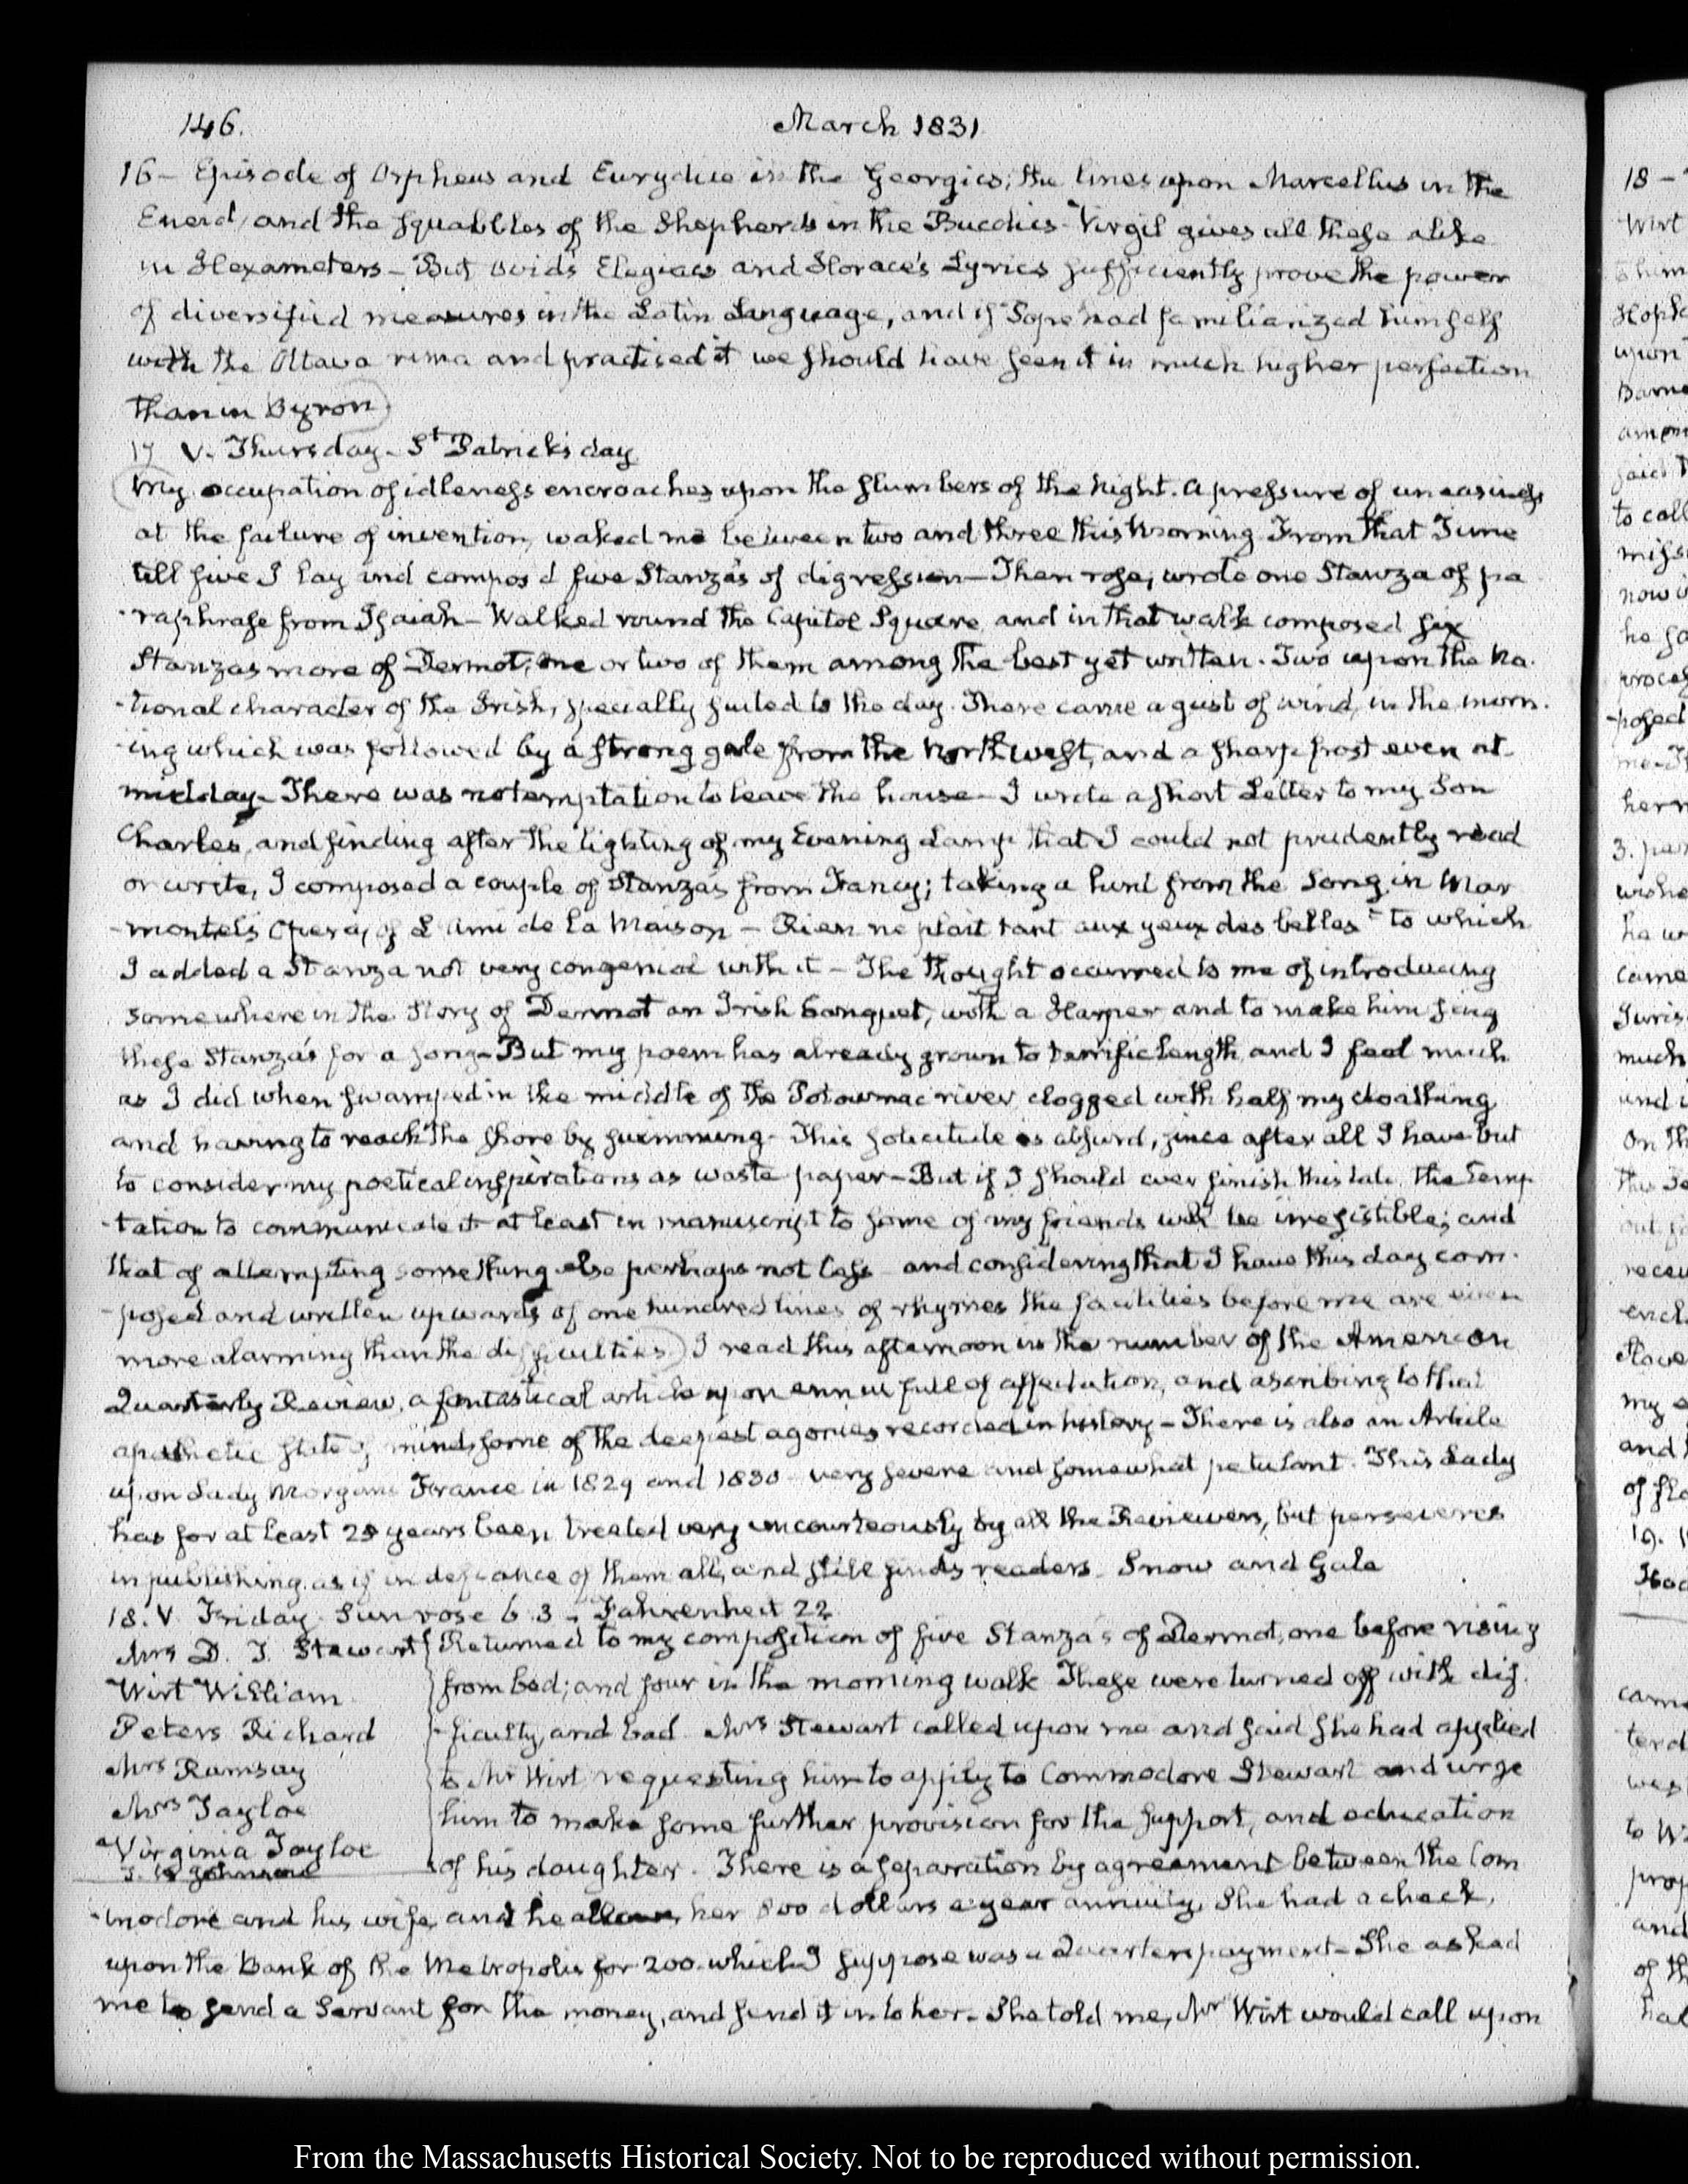 146.
March 1831
16 - Episode of Orpheus and Eurydice in the Georgics; the lines upon Marcellus in the
Eneid, and the squabbles of the Shepherds in the Bucolics - Virgil gives all these alike
in Hexameters - But Ovid's Elegiacs and Horace's Lyrics sufficiently prove the power
of diversified measures in the Latin Language, and if Pope had familiarized himself
with the Ottava rima and practised it we should have seen it in much higher perfection
than in Byron
17 V. Thursday - St Patrick's day
My occupation of idleness encroaches upon the slumbers of the night. A pressure of uneasiness
at the failure of invention, waked me between two and three this Morning From that Time
till five I lay and compos'd five Stanza's of digression - Then rose, wrote one Stanza of pa
-raphrase from Isaiah - Walked round the Capitol Square, and in that walk composed six
Stanzas more of Dermot, one or two of them among the best yet written. Two upon the Na-
-tional character of the Irish, specially suited to the day. There came a gust of wind, in the morn-
-ing which was followed by a strong gale from the Northwest, and a sharp frost even at
midday - There was no temptation to leave the house - I wrote a short Letter to my Son
Charles, and finding after the lighting of my Evening Lamp that I could not prudently read
or write, I composed a couple of Stanza's from Fancy; taking a hint from the Song in Mar
-montel's Opera, of L'ami de la Maison - Rien ne plait tant aux yeux des belles - to which
I added a Stanza not very congenial with it - The thought occurred to me of introducing
somewhere in the Story of Dermot an Irish banquet, with a Harper and to make him sing
these Stanza's for a song - But my poem has already grown to terrific length, and I feel much
as I did when swamped in the middle of the Potowmac river, clogged with half my cloathing
and having to reach the shore by swimming - This solicitude is absurd, since after all I have but
to consider my poetical inspirations as waste paper - But if I should ever finish this tale, the temp
-tation to communicate it at least in manuscript to some of my friends will be irresistible; and
that of attempting something else perhaps not less and considering that I have this day com-
-posed and written upwards of one hundred lines of rhymes the facilities before me are even
more alarming than the difficulties) I read this afternoon in the number of the American
Quarterly Review, a fantastical article upon ennui full of affectation, and ascribing to that
apathetic state of mind some of the deepest agonies recorded in history - There is also an Article
upon Lady Morgan's France in 1829 and 1830 very severe and somewhat petulant. This Lady
has for at least 25 years been treated very uncourteously by all the Reviewers, but perseveres
in publishing as if in defiance of them all, and still finds readers. Snow and Gale
18. V. Friday. Sun rose 6 3 - Fahrenheit 22
Mrs D. T. Stewart
Wirt William
Peters Richard
Mrs Ramsay
Mrs Tayloe
Virginia Tayloe
Johnson
Returned to my composition of five Stanza's of Dermot, one before rising
from bed; and four in the morning walk These were turned off with dif-
-ficulty, and bad. Mrs Stewart called upon me and said she had applied
to Mr Wirt requesting him to apply to Commodore Stewart and urge
him to make some further provision for the support, and education
of his daughter. There is a separation by agreement between the Com
-modore and his wife, and he allows her 800 dollars a year annuity. She had a check,
upon the Bank of the Metropolis for 200 which I suppose was a Quarter payment - She asked
me to send a Servant for the money, and send it in to her. She told me, Mr Wirt would call upon
From the Massachusetts Historical Society. Not to be reproduced without permission.